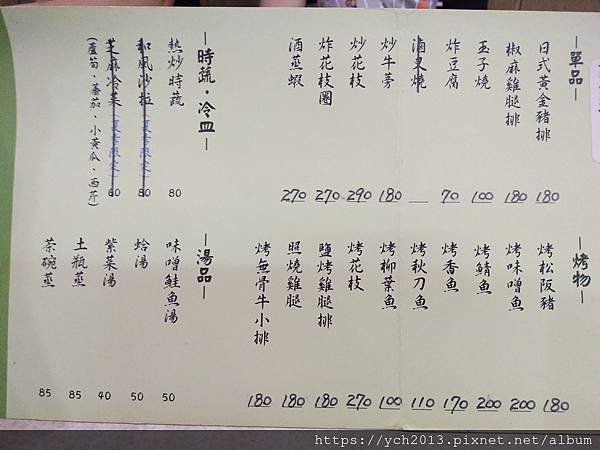 —單品—
日式黃金豬排 180
椒麻雞腿排 180
玉子燒 100
炸豆腐 70
滷叉燒
炒牛蒡 180
炒花枝 290
炸花枝圈 270
酒蒸蝦 270
—時蔬·冷皿—
熱炒時蔬 80
和風沙拉(夏季限定) 80
芝麻冷菜(夏季限定) 80
(蘆筍、蕃茄、小黃瓜、西芹)
—烤物—
烤松阪豬 180
烤味噌魚 200
烤鯖魚 200
烤香魚 170
烤秋刀魚 110
烤柳葉魚 100
烤花枝 270
鹽烤雞腿排 180
照燒雞腿 180
烤無骨牛小排 180
—湯品—
味噌鮭魚湯 50
蛤湯 50
紫菜湯 40
土瓶蒸 85
茶碗蒸 85
https://ych2013.pixnet.net/album